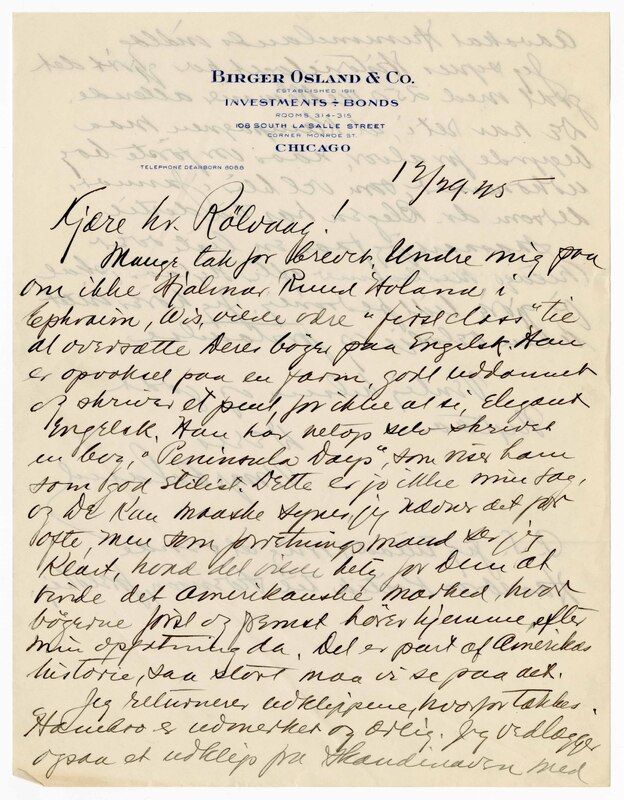 BIRGER OSLAND & CO.
ESTABLISHED 1911
INVESTMENTS ÷ BONDS
ROOMS 314-315
108 SOUTH LA SALLE STREET
CORNER MONROE ST.
CHICAGO
TELEPHONE DEARBORN 8058
12/29.25
Kjære hr. Rölvaag!
Mange tak for brevet. Undre mig paa
om ikke Hjalmar Ruud Holand i
Ephraim, Wis, vilde være "first class" til
at oversætte Deres bøger paa Engelsk. Han
er opvokset paa en farm, godt uddannet
og skriver et pent, for ikke at si, elegant
Engelsk. Han har netop selv skrevet
en bog, "Peninsula Days", som viser ham
som god stilist. Dette er jo ikke min sag,
og De kan maaske synes, jeg nævner det for
ofte, men som forretningsmand ser jeg
klart, hvad det vilde bety for Dem at
vinde det Amerikanske marked, hvor
bøgerne først og fremst hører hjemme efter
min opfatning da. Det er part af Amerikas
historie, saa stort maa vi se paa det.
Jeg returnerer udklippene, hvorfor takkes.
Hambro er udmerket og ærlig. Jeg vedlægger
ogsaa et udklip fra Skandinaven med